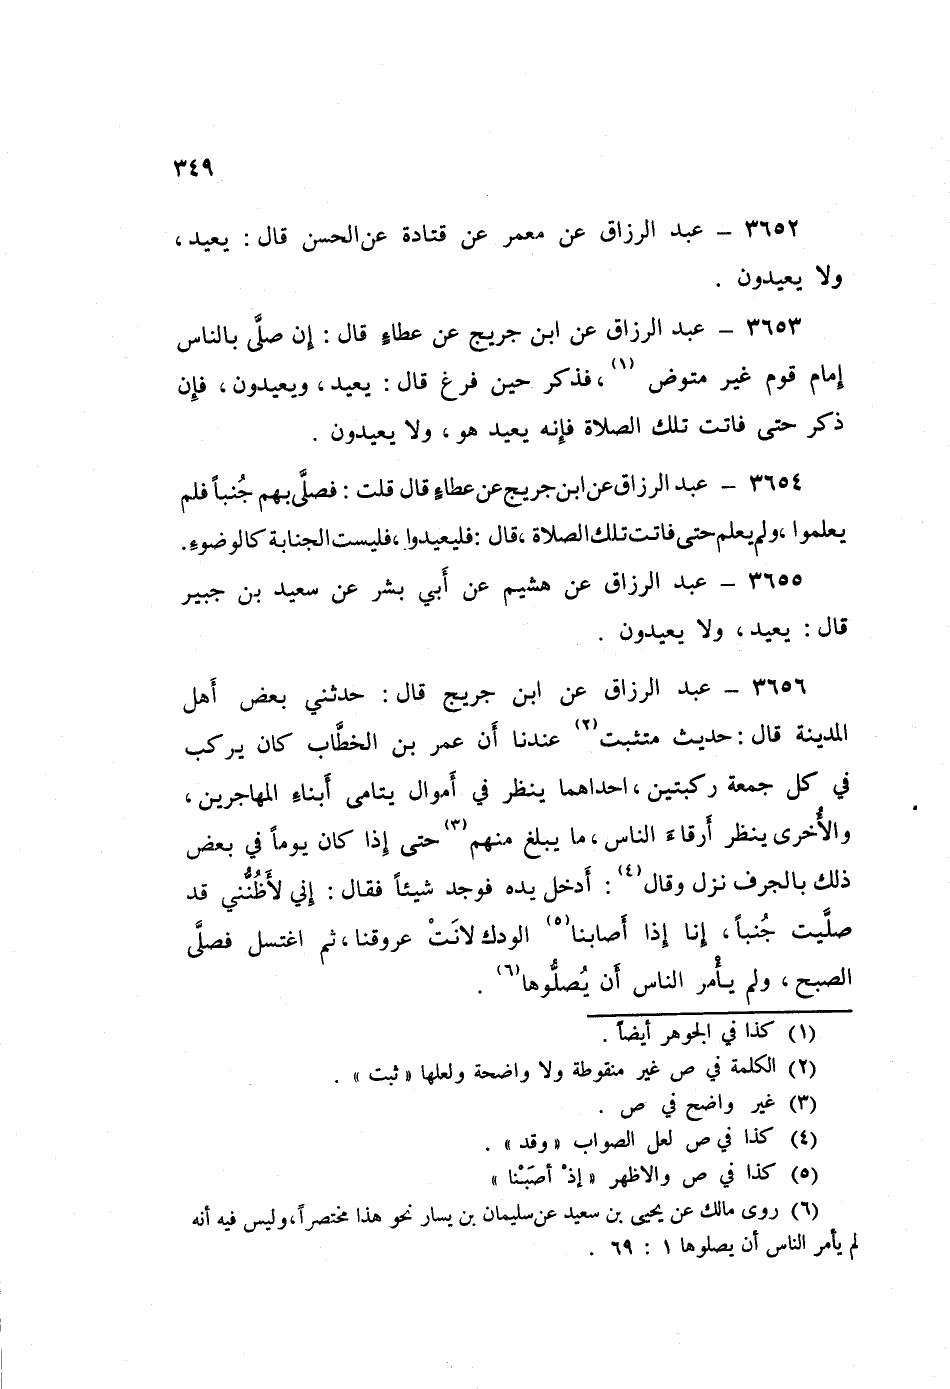 ٣٤٩
٣٦٥٢ - عبد الرزاق عن معمر عن قتادة عن الحسن قال : يعيد ،
ولا يعيدون .
٣٦٥٣ - عبد الرزاق عن ابن جريج عن عطاءٍ قال : إن صلَّى بالناس
إمام قوم غير متوض (١) ، فذكر حين فرغ قال : يعيد ، ويعيدون ، فإن
ذكر حتى فاتت تلك الصلاة فإنه يعيد هو ، ولا يعيدون .
٣٦٥٤ - عبد الرزاق عن ابن جريج عن عطاءٍ قال قلت : فصلَّى بهم جُنباً فلم
يعلموا ، ولم يعلم حتى فاتت تلك الصلاة ، قال : فليعيدوا ، فليست الجنابة كالوضوءِ .
٣٦٥٥ - عبد الرزاق عن هشيم عن أَبي بشر عن سعيد بن جبير
قال : يعيد ، ولا يعيدون .
٣٦٥٦ - عبد الرزاق عن ابن جريج قال : حدثني بعض أَهل
المدينة قال : حديث متثبت (٢) عندنا أَن عمر بن الخطَّاب كان يركب
في كل جمعة ركبتين ، احداهما ينظر في أَموال يتامى أَبناءِ المهاجرين ،
والأُخرى ينظر أَرقاءَ الناس ، ما يبلغ منهم (٣) حتى إذا كان يوماً في بعض
ذلك بالجرف نزل وقال (٤) : أَدخل يده فوجد شيئاً فقال : إني لأَظُنُّني قد
صلَّيت جُنباً ، إنا إذا أَصابنا (٥) الودك لانَتْ عروقنا ، ثم اغتسل فصلَّى
الصبح ، ولم يأْمر الناس أَن يُصلُّوها (٦) .
(١) كذا في الجوهر أيضاً .
(٢) الكلمة في ص غير منقوطة ولا واضحة ولعلها « ثبت » .
(٣) غير واضح في ص .
(٤) كذا في ص لعل الصواب « وقد » .
(٥) كذا في ص والاظهر « إذْ أصَبْنا »
(٦) روى مالك عن يحيى بن سعيد عن سليمان بن يسار نحو هذا مختصراً ، وليس فيه أنه
لم يأمر الناس أن يصلوها ١ : ٦٩ .